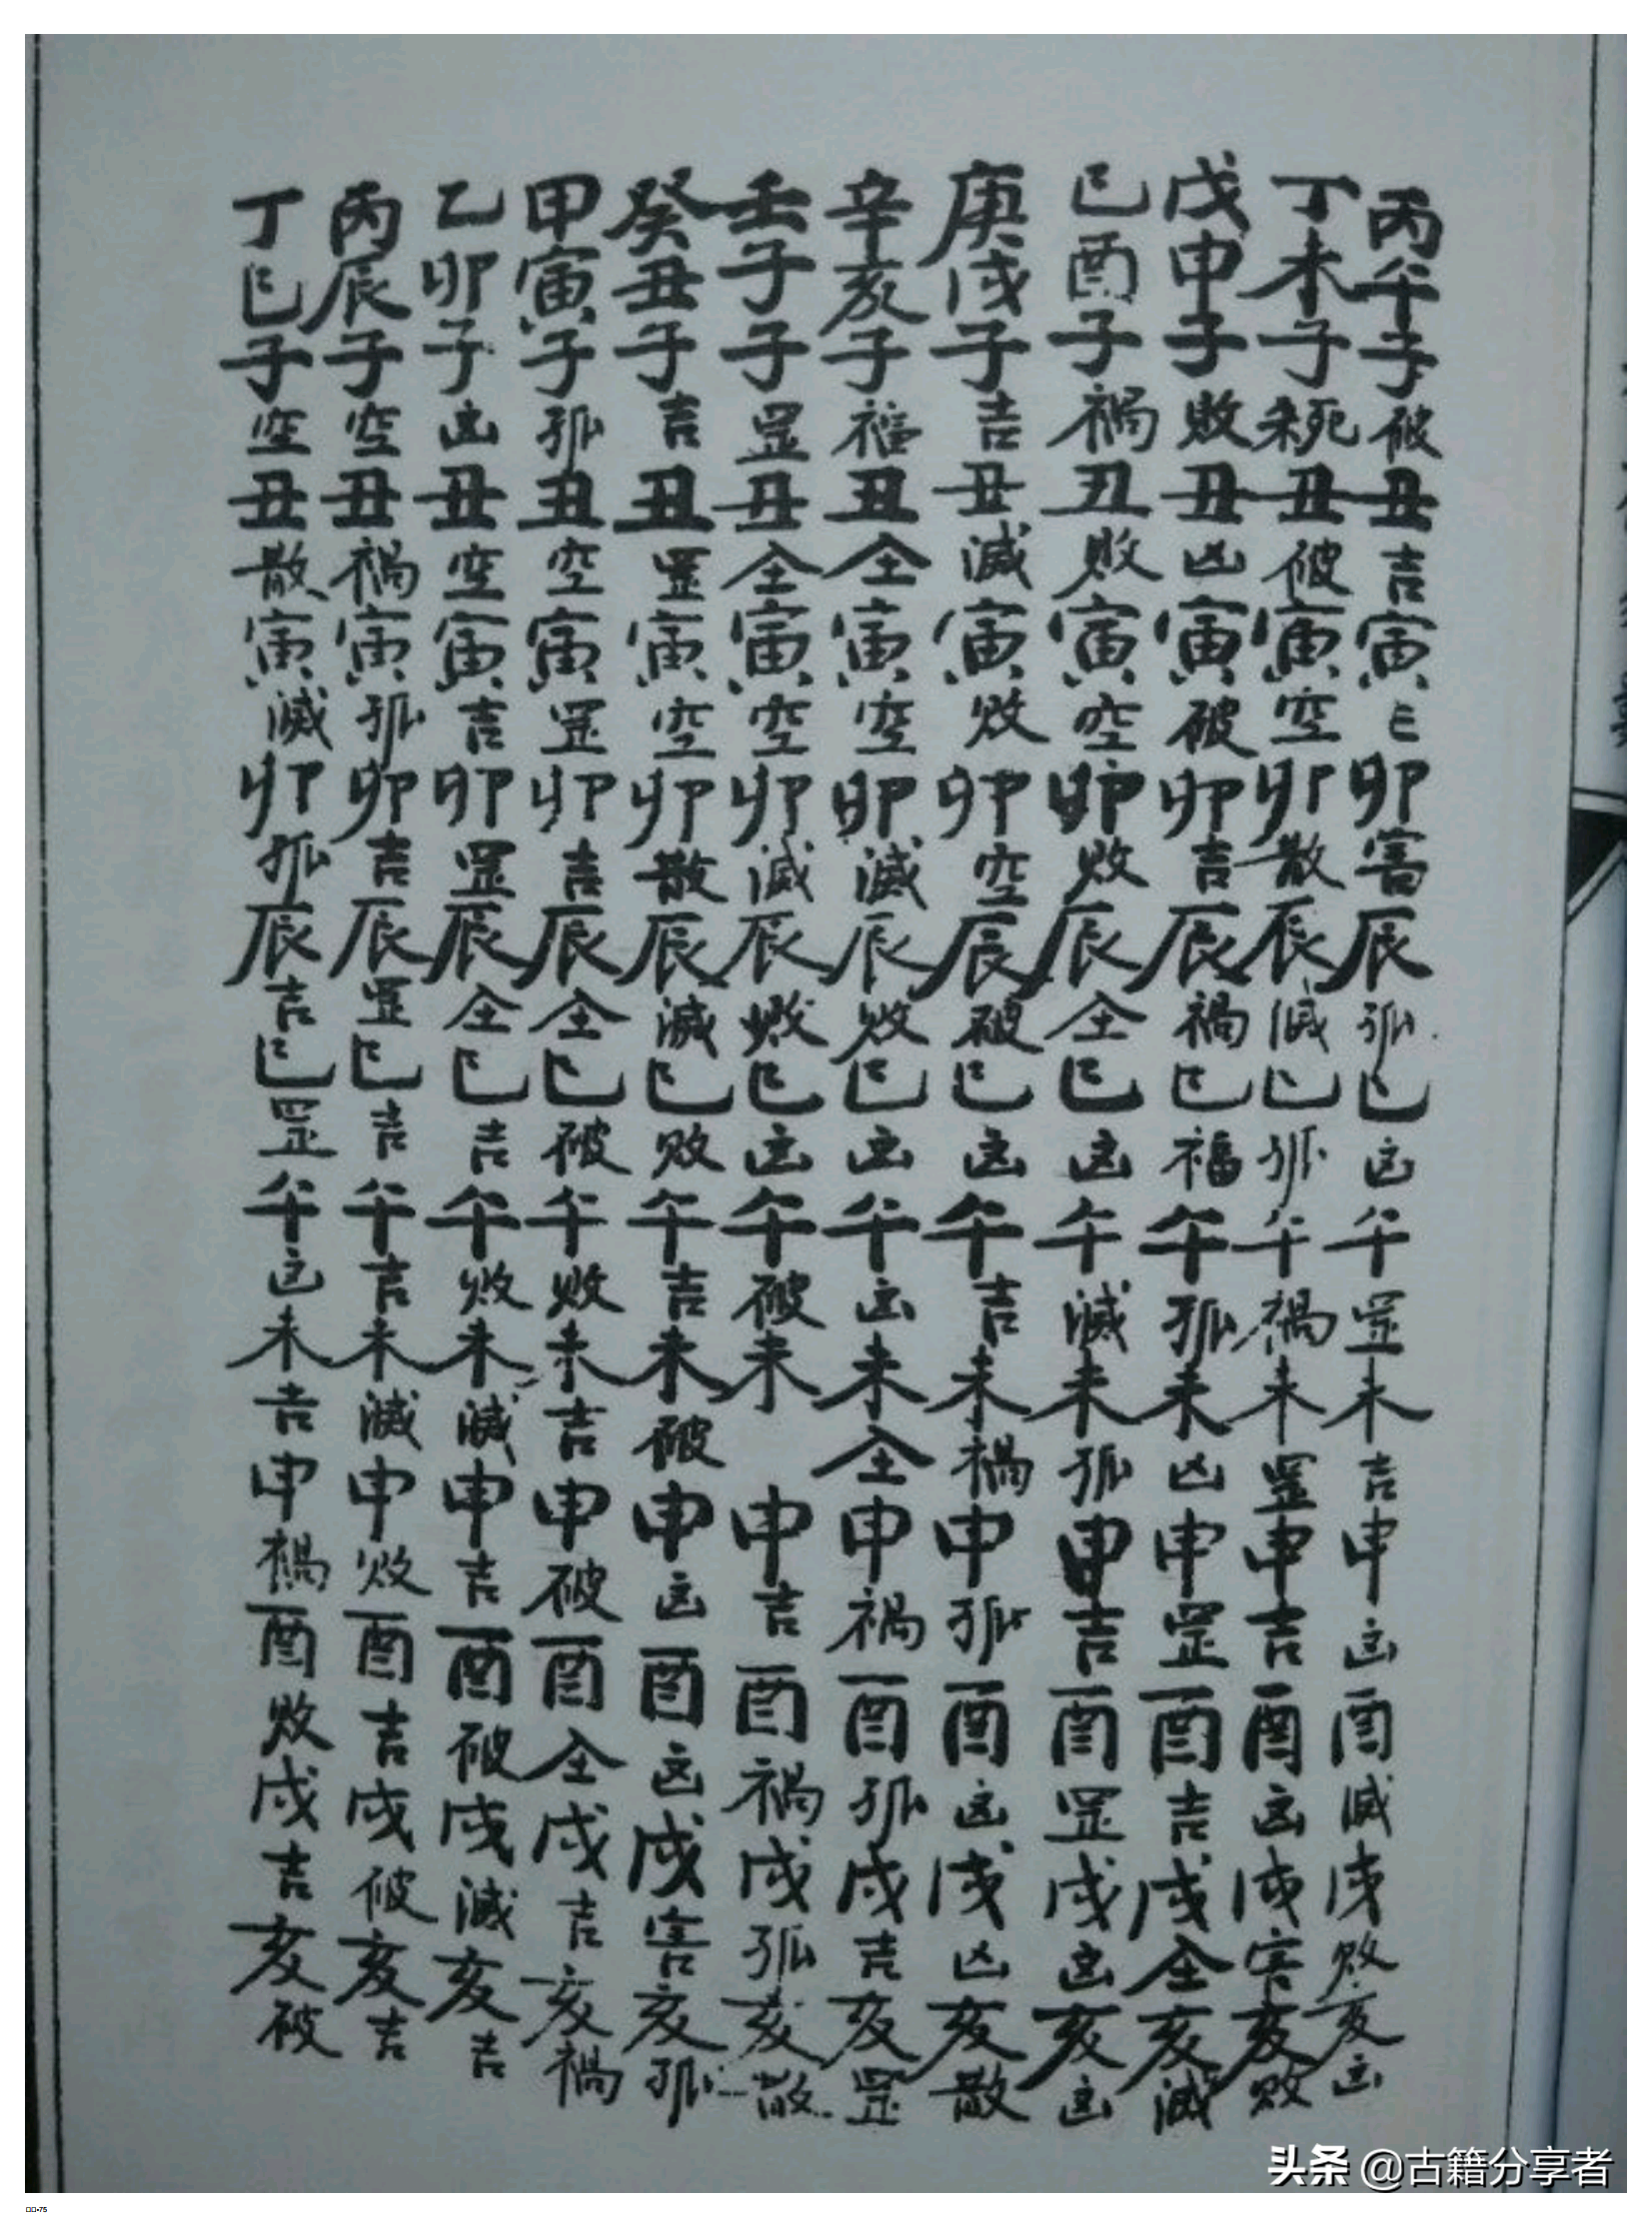 丙午子破丑吉寅亡卯害辰孤巳凶午罡未吉申凶酉滅戌败亥凶
丁未子死丑破寅空卯散辰滅巳孤午禍未罡申吉酉凶戌害亥败
戊申子败丑凶寅破卯吉辰禍巳福午孤未凶申罡酉吉戌全亥滅
己酉子禍丑败寅空卯败辰全巳凶午滅未孤申吉酉罡戌凶亥凶
庚戌子吉丑滅寅败卯空辰破巳凶午吉未禍申孤酉凶戌凶亥散
辛亥子福丑全寅空卯滅辰败巳凶午凶未全申禍酉孤戌吉亥罡
壬子子罡丑全寅空卯滅辰败巳凶午破未申吉酉禍戌孤亥散
癸丑子吉丑罡寅空卯散辰滅巳败午吉未破申凶酉凶戌害亥孤
甲寅子孤丑空寅罡卯吉辰全巳破午败未吉申破酉全戌吉亥禍
乙卯子凶丑空寅吉卯罡辰全巳吉午败未滅申吉酉破戌滅亥吉
丙辰子空丑禍寅孤卯吉辰罡巳吉午吉未滅申败酉吉戌破亥吉
丁巳子空丑散寅滅卯孤辰吉巳罡午凶未吉申禍酉败戌吉亥破
头条 @古籍分享者